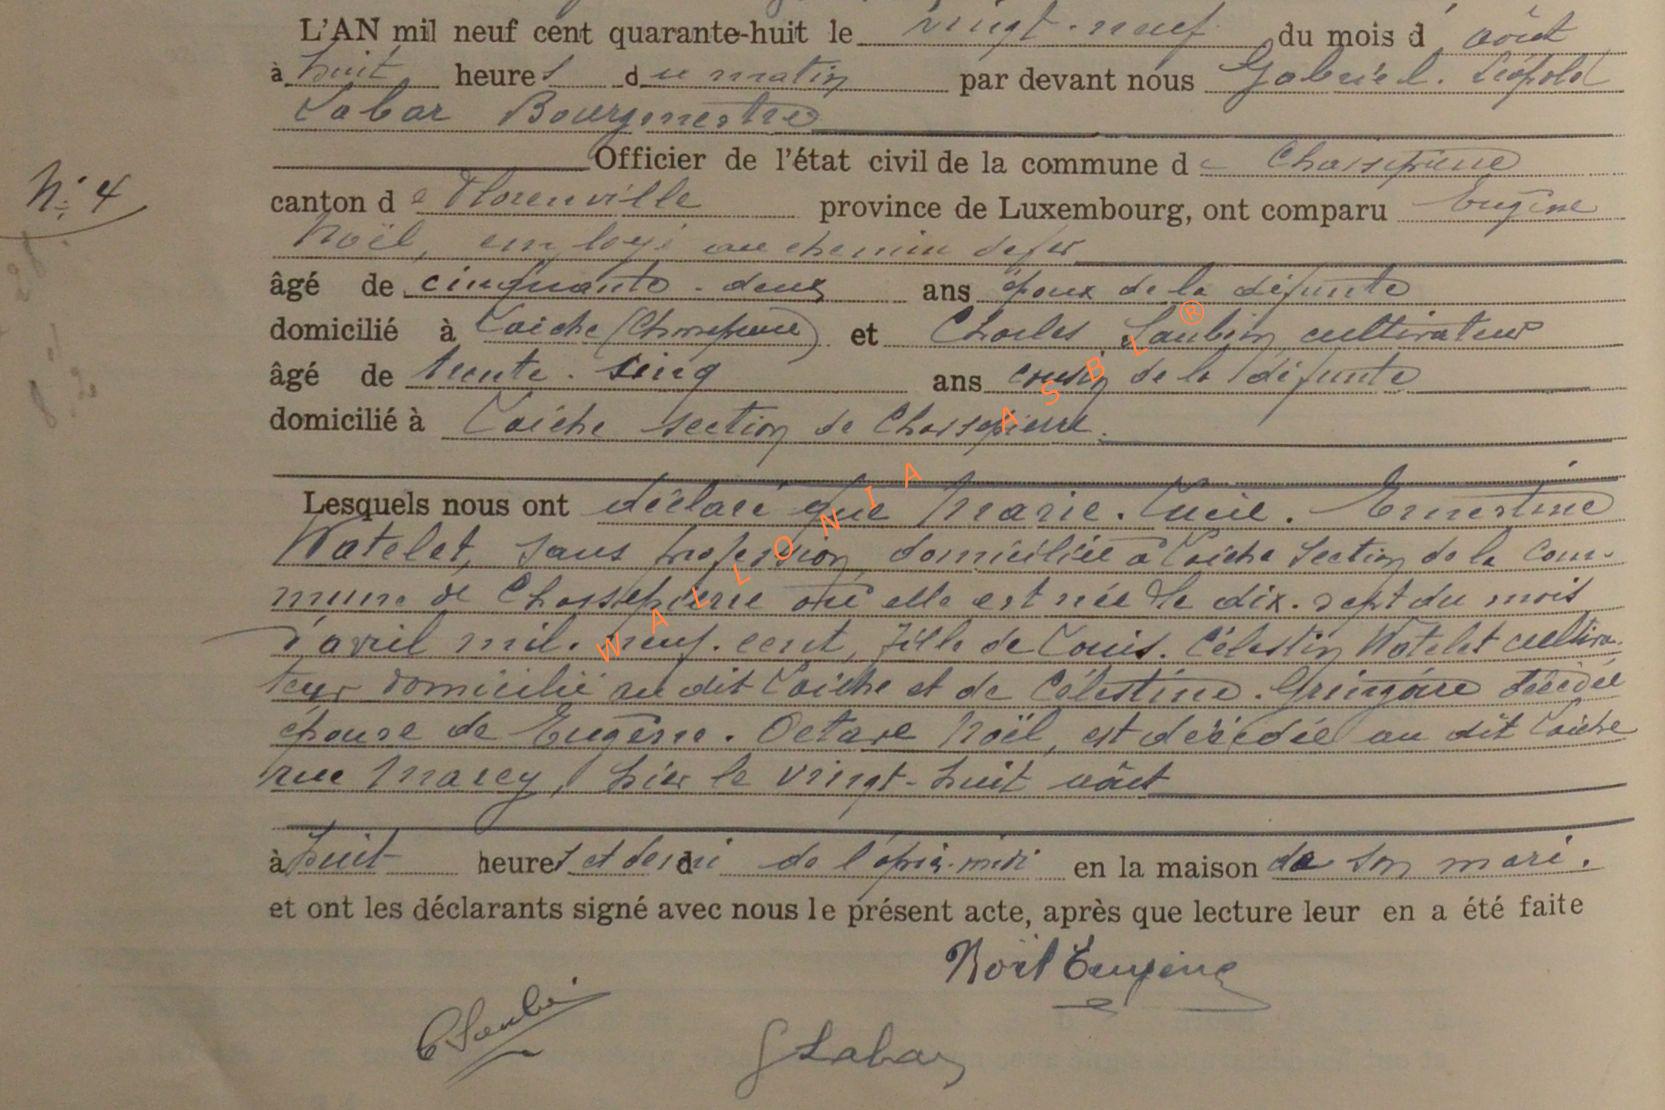 L'AN mil neuf cent quarante-huit le vingt-neuf du mois d'août
à huit heures du matin par devant nous Gabriel. Léopold
Labar Bourgmestre
Officier de l'état civil de la commune de Chassepierre
N° 4
canton de Florenville province de Luxembourg, ont comparu Eugène
Noël, employé au chemin de fer
âgé de cinquante-deux ans époux de la défunte
domicilié à Laiche (Chassepierre) et Charles Laubin cultivateur
âgé de trente-cinq ans cousin de la défunte
domicilié à Laiche section de Chassepierre.
Lesquels nous ont déclaré que Marie. Lucie. Ernestine
Watelet, sans profession, domiciliée à Laiche section de la com-
mune de Chassepierre où elle est née le dix-sept du mois
d'avril mil. neuf. cent, fille de Louis. Célestin Watelet cultiva-
teur domicilié au dit Laiche et de Célestine. Gringoire décédée
épouse de Eugène. Octave Noël, est décédée au dit Laiche
rue Marcy, hier le vingt-huit août
à huit heures et demi de l'après-midi en la maison de son mari.
et ont les déclarants signé avec nous le présent acte, après que lecture leur en a été faite
Noël Eugène
C Laubin
G Labar
WALLONIA ASBL ®